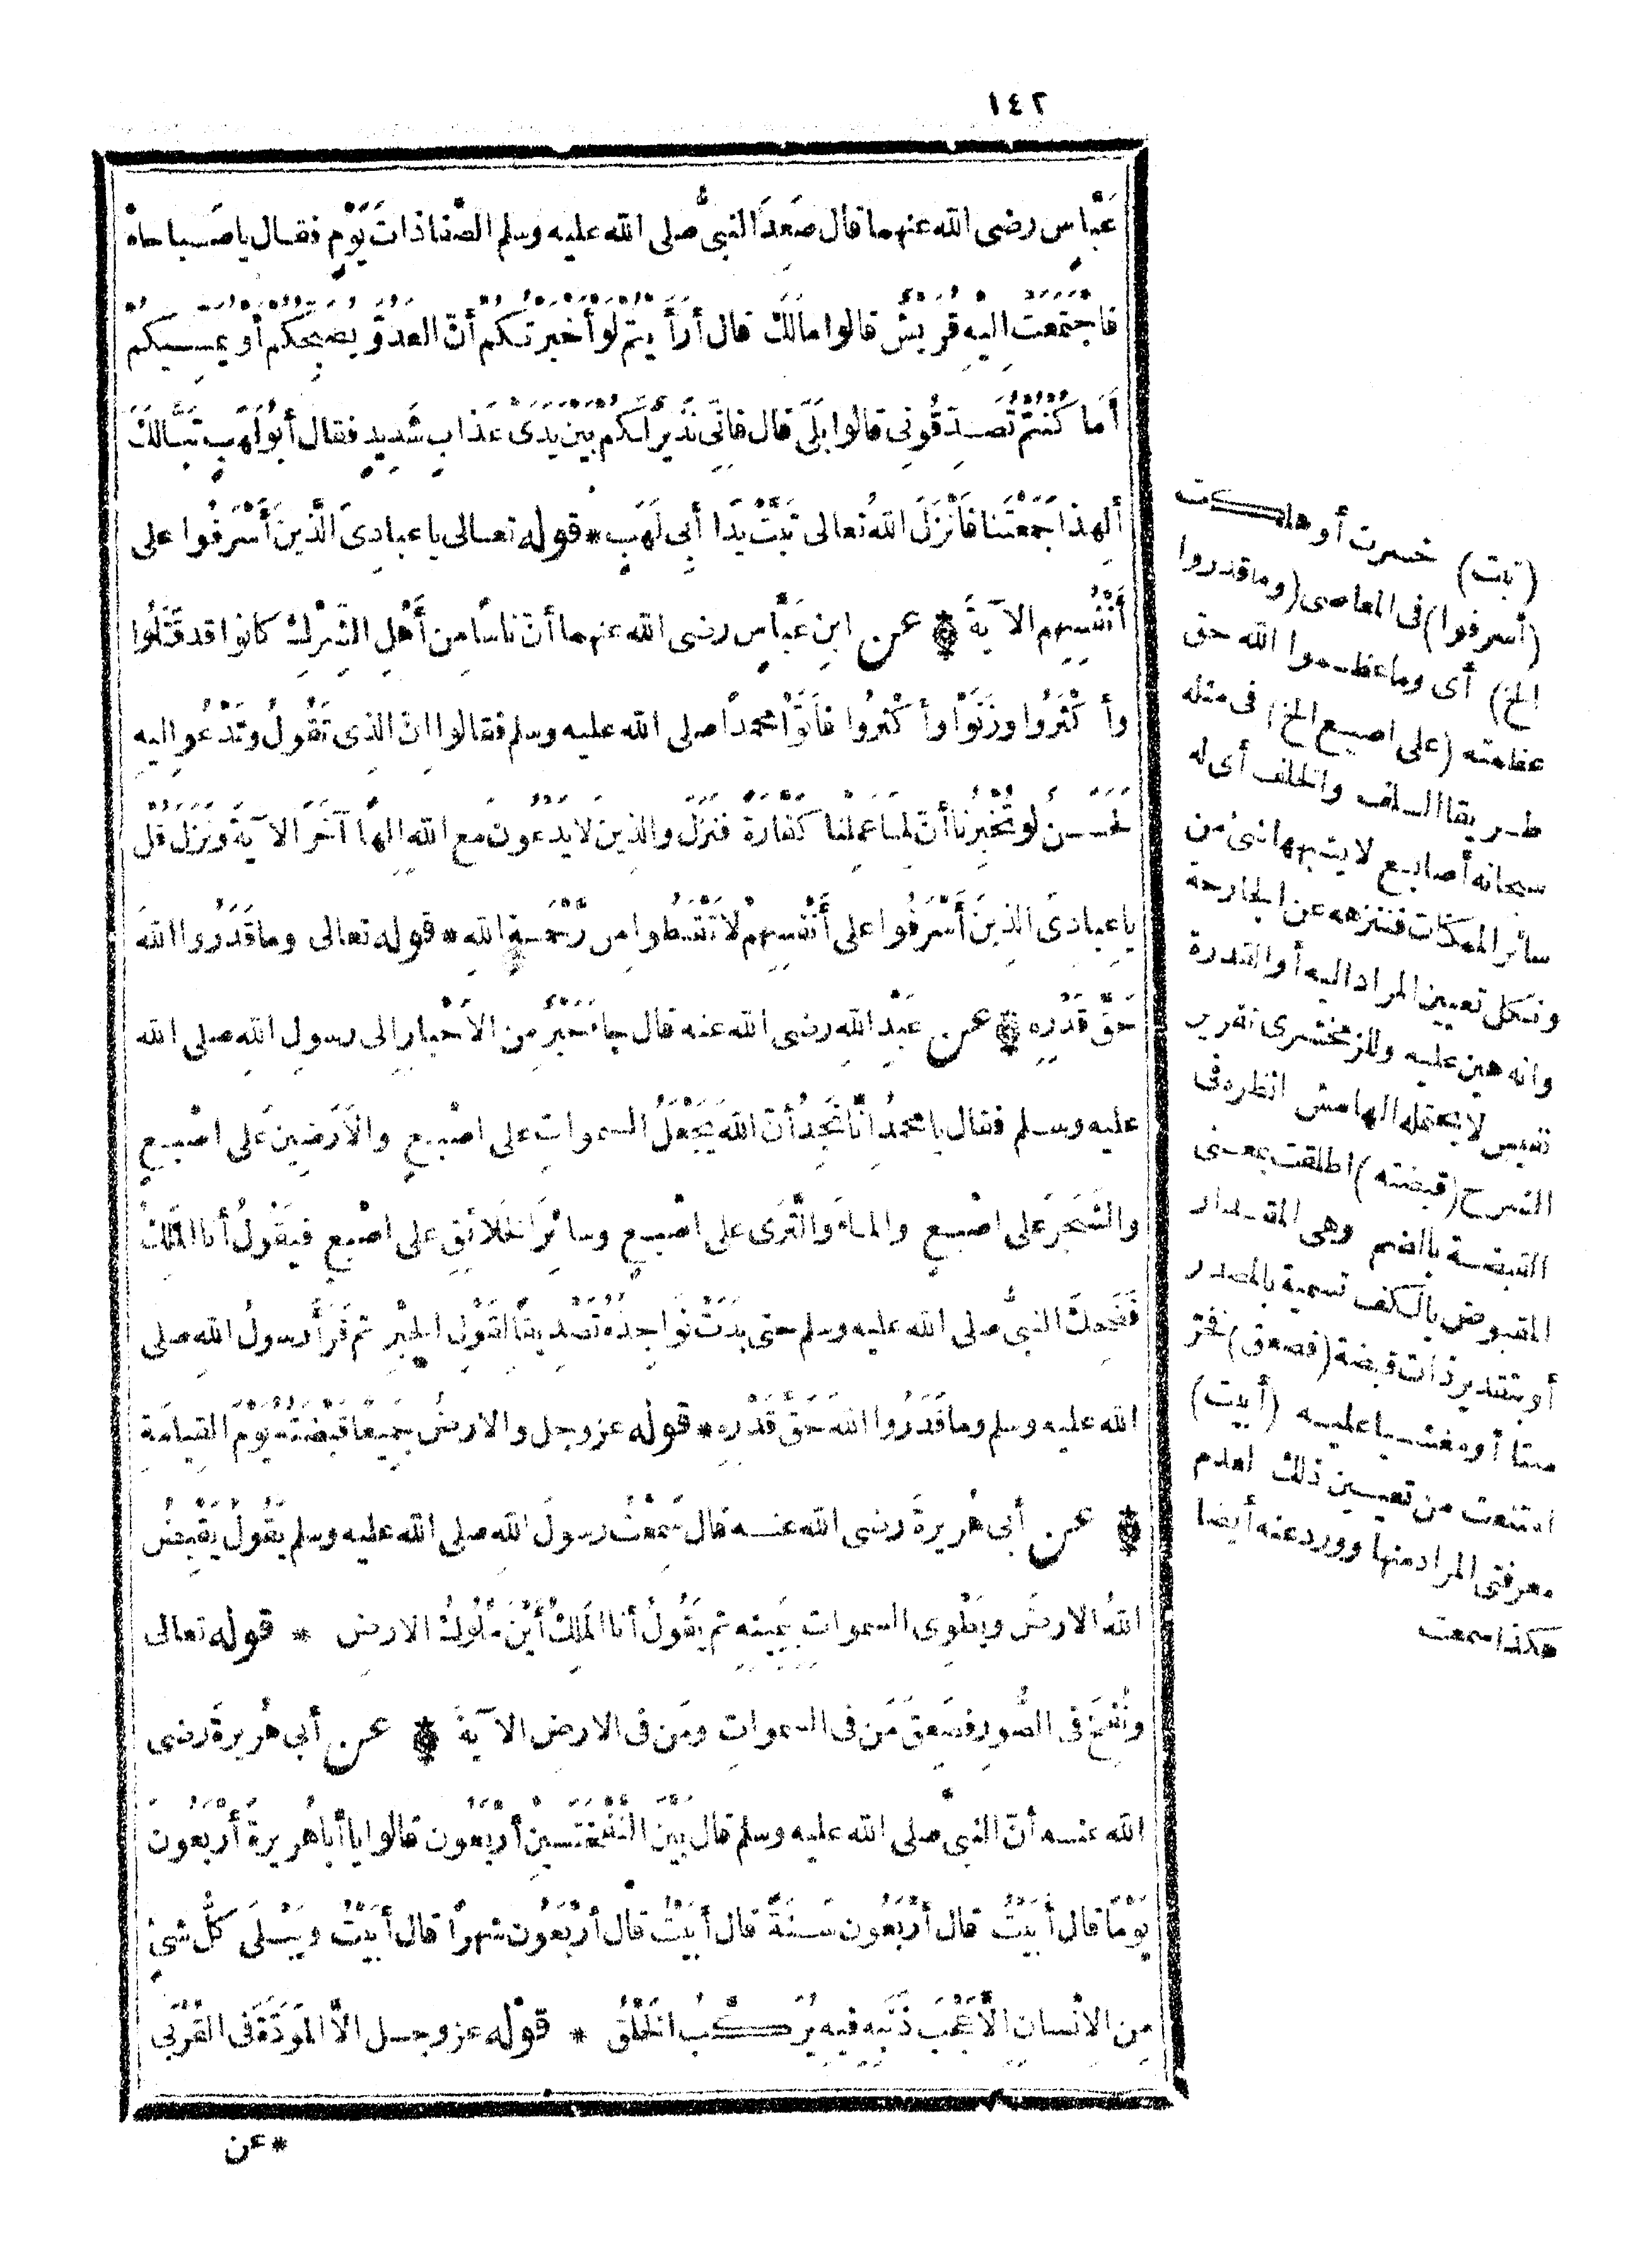 ١٤٢
عَبَّاسٍ رضى الله عنهما قال صَعِدَ النبىُّ صلى الله عليه وسلم الصَّفا ذاتَ يَوْمٍ فقال يا صَباحاهْ
فاجْتَمَعَتْ اليْهِ قُرَيْشٌ قالوا مالَكَ قال أرَأَيْتُمْ لَوْ أخْبَرْتُكم أنّ العَدُوَّ يُصَبِّحُكُمْ أوْ يُمَسِّيكُمْ
أَمَا كُنْتُمْ تُصَدِّقُونِى قالوا بَلَى قال فانِّى نَذِيرٌ لَكُمْ بَيْنَ يَدَىْ عَذَابٍ شَدِيدٍ فقال أبُو لَهَبٍ تَبَّا لَكَ
ألِهذا جَمَعْتَنا فَأَنْزَلَ اللهُ تعالى تَبَّتْ يَدَا أبِى لَهَبٍ * قوله تعالى يا عبادِىَ الَّذينَ أَسْرَفُوا على
أَنْفُسِهِم الآيةَ * عن ابنِ عَبَّاسٍ رضى الله عنهما أنّ ناسًا مِن أَهْلِ الشِّرْكِ كانوا قد قَتَلُوا
وأ كْثَرُوا وزَنَوْا وأ كْثَرُوا فأَتَوْا محمدًا صلى الله عليه وسلم فقالوا انّ الذِى تَقُولُ وتَدْعُو اليهِ
لَحَسَنٌ لَوْ تُخْبِرُنا أنّ لِمَا عَمِلْنا كَفَّارَةً فنَزَلَ والذِينَ لا يَدْعُونَ مع اللهِ الهًا آخَرَ الآيةَ ونَزَلَ قُلْ
يا عِبادِىَ الذِينَ أَسْرَفُوا على أَنْفُسِهِمْ لا تَقْنَطُوا مِن رَحْمَةِ اللهِ * قوله تعالى وما قَدَرُوا اللهَ
حَقَّ قَدْرِهِ * عن عَبْدِ اللهِ رضى الله عنه قال جاءَ حَبْرٌ مِن الاَحْبارِ الى رسولِ اللهِ صلى الله
عليه وسلم فقال يا محمدُ انَّا نَجِدُ أنّ اللهَ يَجْعَلُ السمواتِ على اصْبعٍ والاَرَضِينَ على اصْبعٍ
والشَّجَرَ على اصْبعٍ والماءَ والثَّرَى على اصْبعٍ وسائِرَ الخلائقِ على اصْبعٍ فيَقُولُ أنا المَلِكُ
فضَحِكَ النبىُّ صلى الله عليه وسلم حتى بَدَتْ نَواجِذُهُ تَصْدِيقًا لقَوْلِ الحِبْرِ ثم قَرَأَ رسولُ اللهِ صلى
الله عليه وسلم وما قَدَرُوا اللهَ حَقَّ قَدْرِهِ * قوله عز وجل والارضُ جَمِيعًا قَبْضَتُهُ يَوْمَ القِيامَةِ
* عن أبى هُرَيرةَ رضى الله عنه قال سَمِعْتُ رسولَ اللهِ صلى الله عليه وسلم يَقُولُ يَقْبِضُ
اللهُ الارضَ ويَطْوِى السمواتِ بِيَمِينِهِ ثم يَقُولُ أنا المَلِكُ أَيْنَ مُلُوكُ الارضِ * قوله تعالى
ونُفِخَ فى الصُّورِ فصَعِقَ مَن فى السمواتِ ومَن فى الارضِ الآيةَ * عن أبى هُرَيرةَ رضى
الله عنه أنّ النبىَّ صلى الله عليه وسلم قال بَيْنَ النَّفْخَتَيْنِ أرْبَعُون قالوا يا أبا هُرَيرةَ أَرْبَعُونَ
يَوْمًا قال أبَيْتُ قال أرْبَعُون سَنَةً قال أبَيْتُ قال أرْبَعُون شهرًا قال أبَيْتُ ويَبْلَى كلُّ شىءٍ
مِن الاِنْسانِ الاَّ عَجْبَ ذَنَبِهِ فيهِ يُرَكَّبُ الخَلْقُ * قوله عز وجل الاَّ المَوَدَّةَ فى القُرْبَى
* عن
(تبت) خسرت أو هلكت
(أسرفوا) فى المعاصى (وما قدروا
الخ) أى وما عظموا الله حق
عظمته (على اصبع الخ) فى مثله
طريقا السلف والخلف أى له
سبحانه أصابع لا يشبهها شئ من
سائر الممكنات فننزهه عن الجارحة
ونكل تعيين المراد اليه أو القدرة
وانه هين عليه وللزمخشرى تقرير
نفيس لا يحتمله الهامش انظره فى
الشرح (قبضته) اطلقت بمعنى
القبضة بالضم وهى المقدار
المقبوض بالكف تسمية بالمصدر
أو بتقدير ذات قبضة (فصعق) فخر
ميتا أو مغشيا عليه (أبيت)
امتنعت من تعيين ذلك لعدم
معرفتى المراد منها وورد عنه أيضا
هكذا سمعت